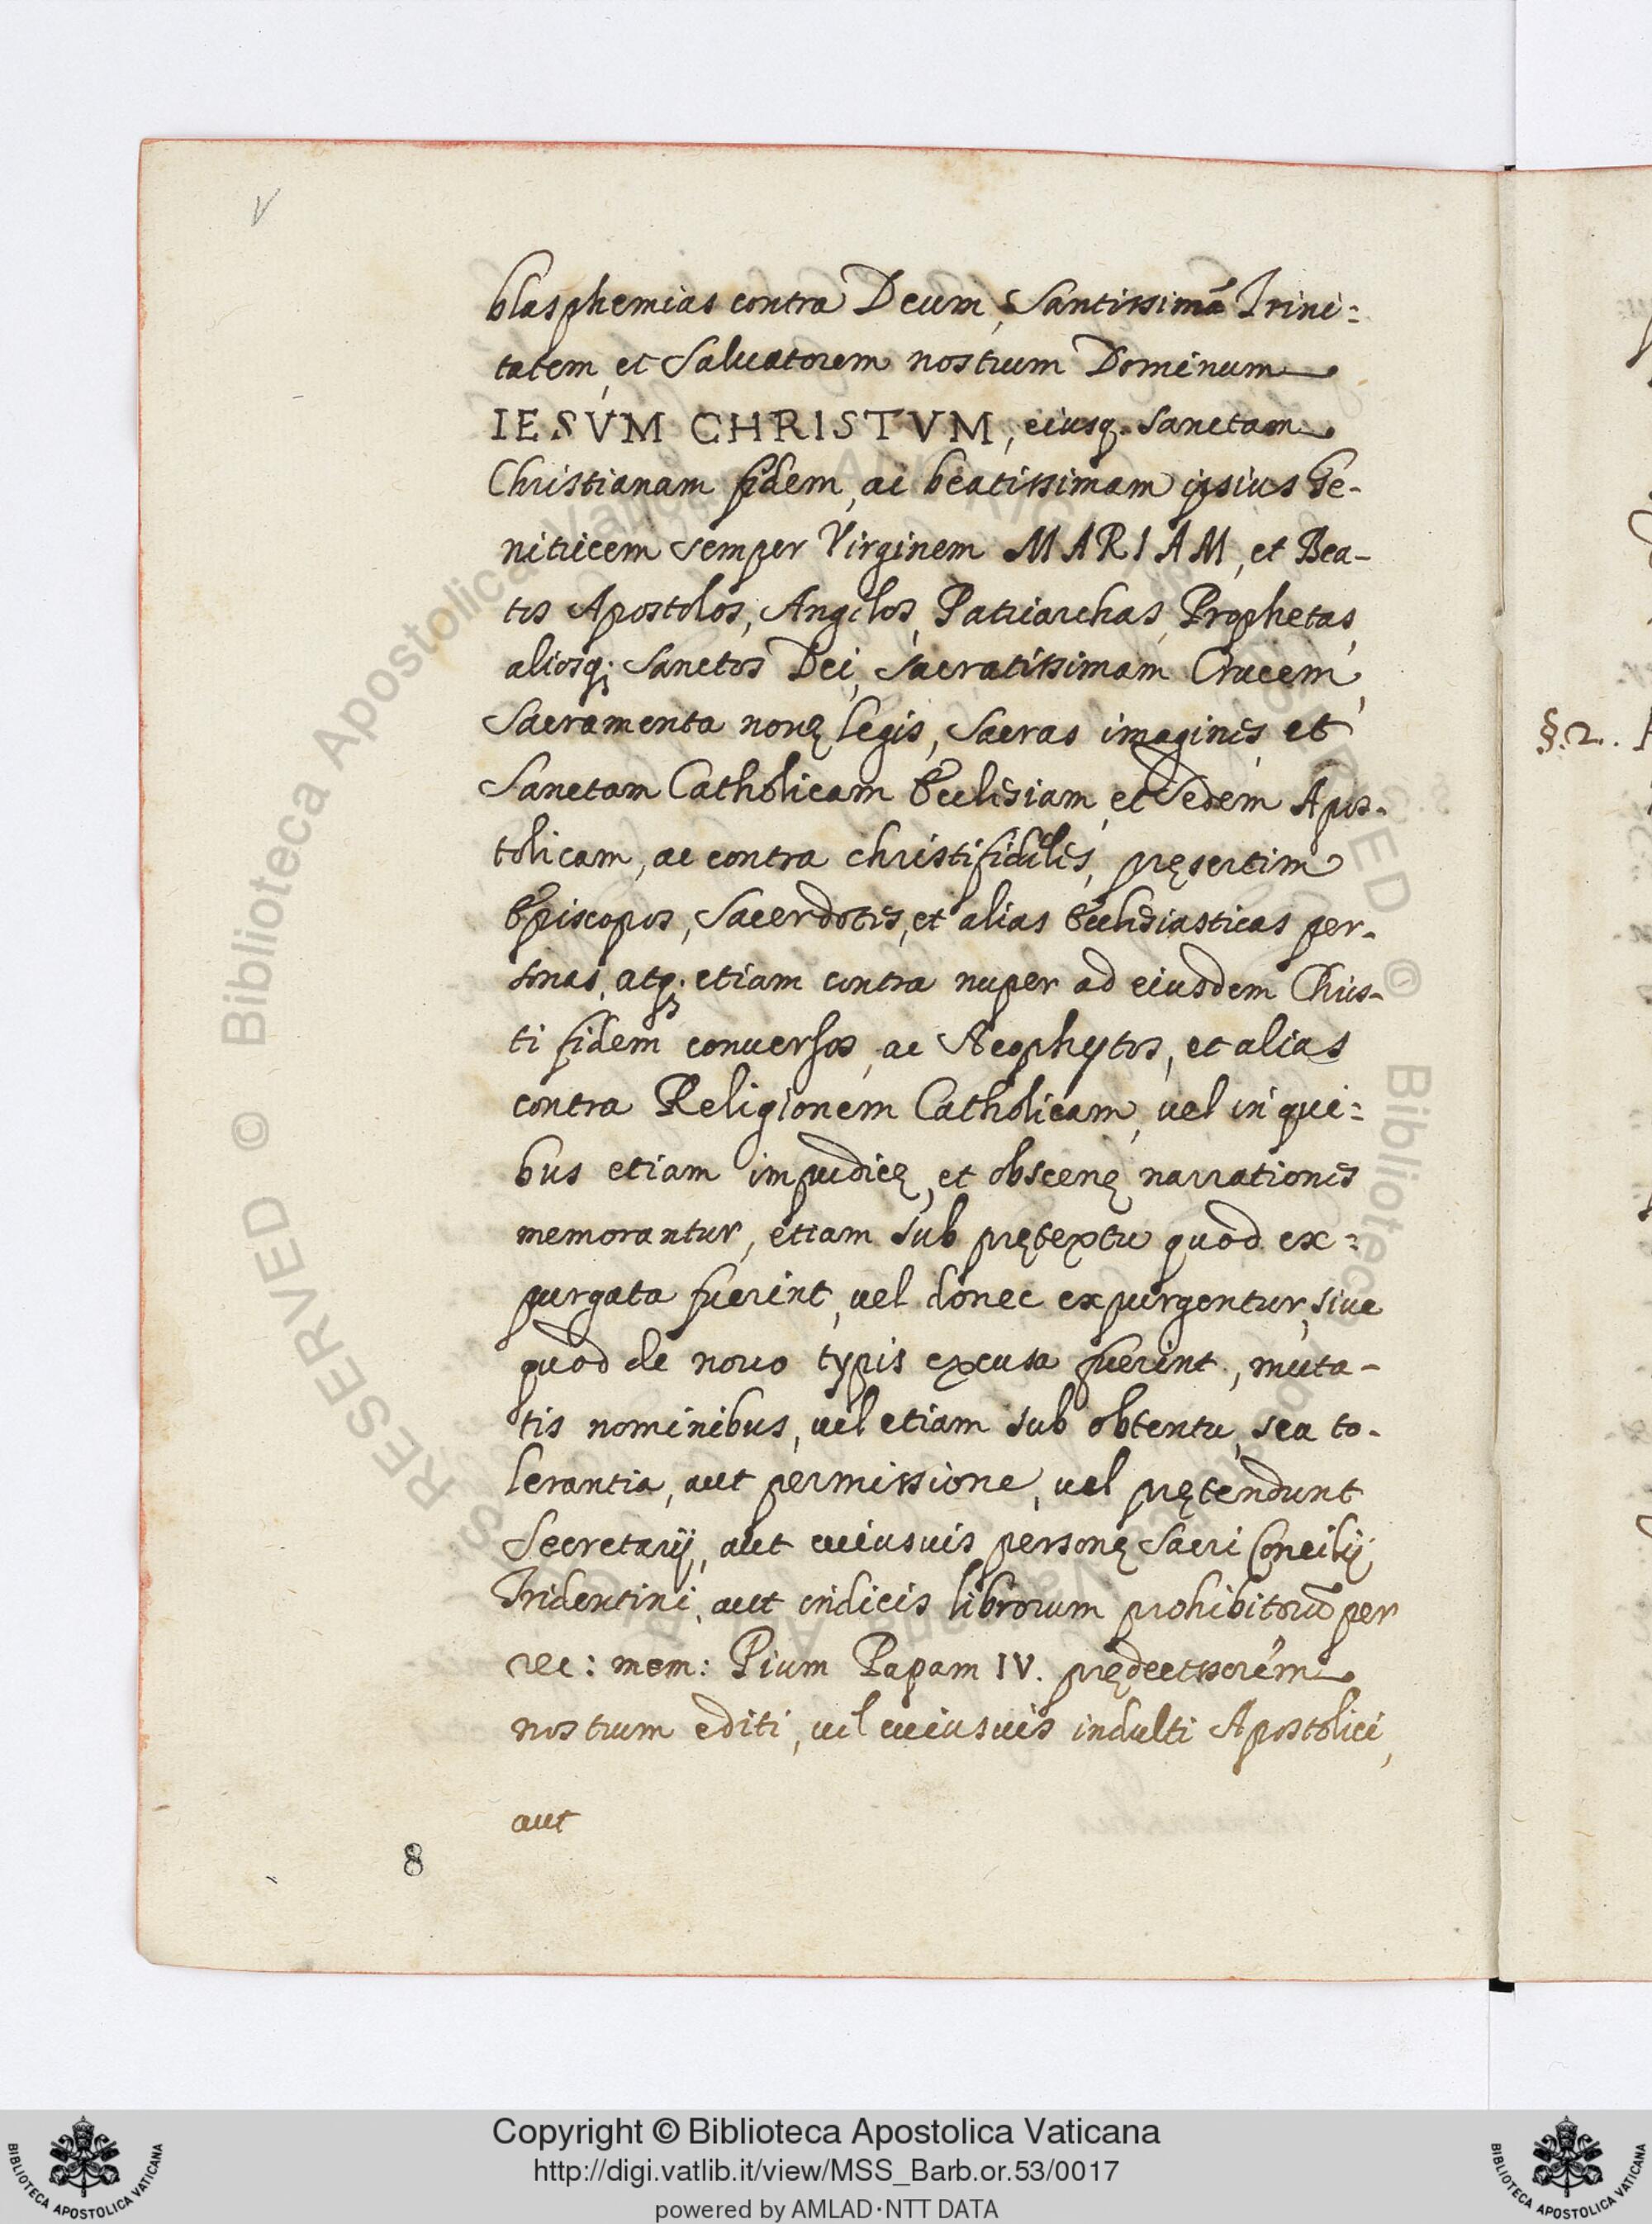 V
blasphemias contra Deum, Santissimã Trini:
tatem, et Saluatorem nostrum Dominum
IESVM CHRISTVM, eiusq. Sanctam
Christianam fidem, ac beatissimam ipsius Ge-
nitricem semper Virginem MARIAM, et Bea-
tos Apostolos, Angelos, Patriarchas, Prophetas,
aliosq; Sanctos Dei, sacratissimam Crucem,
Sacramenta nouę legis, Sacras imagines, et
Sanctam Catholicam Ecclesiam, et Sedem Apos-
tolicam, ac contra christifideles, pręsertim
Episcopos, Sacerdotes, et alias Ecclesiasticas per-
sonas, atq; etiam contra nuper ad eiusdem Chris-
ti fidem conuersos, ac Neophytos, et alias
contra Religionem Catholicam, uel in qui:
bus etiam impudicę, et obscenę narrationes
memorantur, etiam sub prętextu quod ex:
purgata fuerint, uel donec expurgentur, siue
quod de nouo typis excusa fuerint, muta-
tis nominibus, uel etiam sub obtentu, seu to-
lerantia, aut permissione, uel prętendunt
Secretarij, aut cuiusuis personę Sacri Concilij
Tridentini, aut indicis librorum prohibitorũ per
rec: mem: Pium Papam IV. prędecessorem
nostrum editi, uel cuiusuis indulti Apostolici,
aut
8
§.2.
Copyright © Biblioteca Apostolica Vaticana
http://digi.vatlib.it/view/MSS_Barb.or.53/0017
powered by AMLAD·NTT DATA